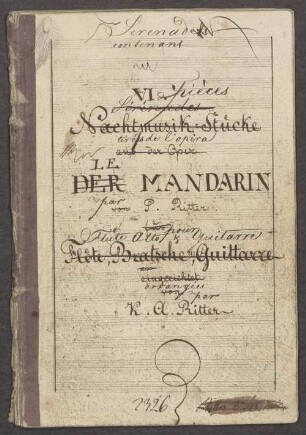 Serenades
contenant
VI pièces
Sérénades
Nachtmusik-Stücke
tirés de l'opéra
aus der Oper
LE
DER MANDARIN
par
von P. Ritter
pour
Flute Alto & Guitarre
Flöte, Bratsche, Guittarre
eingerichtet
arrangées
von par
K. A. Ritter
2326